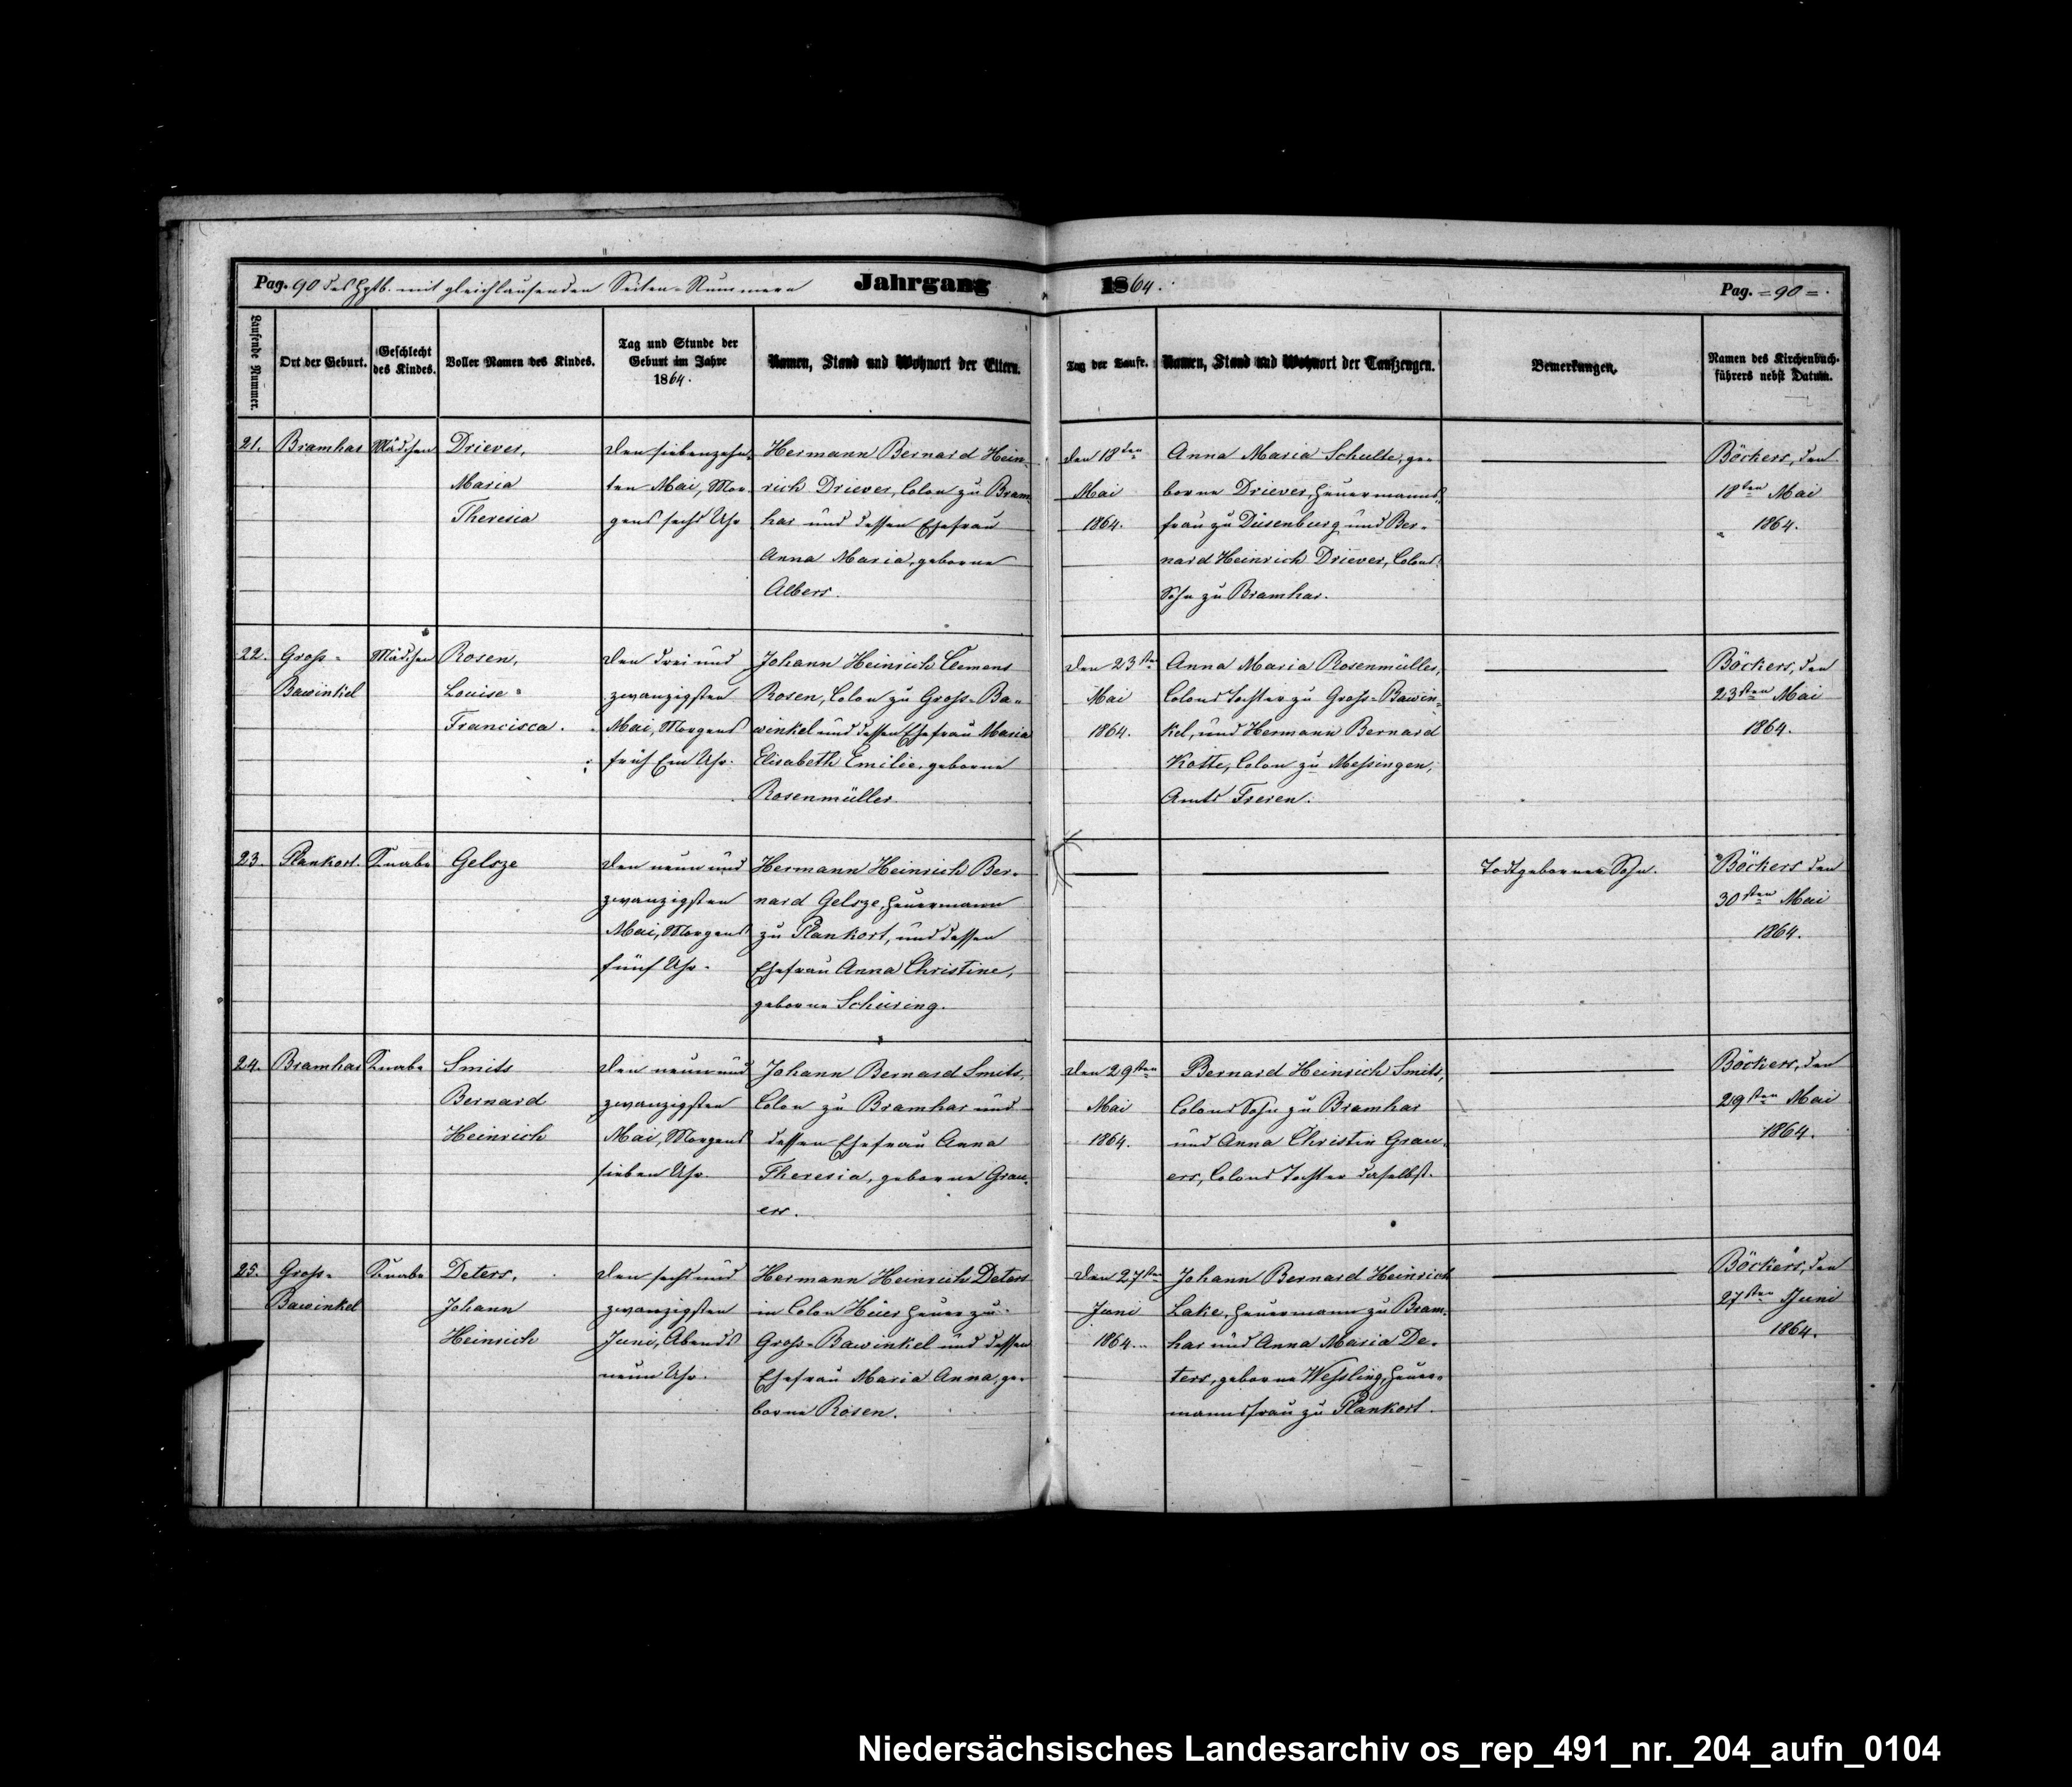 Pag. 90 des Hptb. mit gleichlaufenden Seiten-Nummern Jahrgang 1864. Pag. =90=.
Laufende Nummer.
Ort der Geburt.
Geschlecht
des Kindes.
Voller Namen des Kindes.
Tag und Stunde der
Geburt im Jahre
1864.
Namen, Stand und Wohnort der Eltern.
Tag der Taufe.
Namen, Stand und Wohnort der Taufzeugen.
Bemerkungen.
Namen des Kirchenbuch-
führers nebst Datum.
21.
Bramhar
Mädchen
Driever,
Maria
Theresia
Den siebenzehn-
ten Mai, Mor-
gens sechs Uhr
Hermann Bernard Hein-
rich Driever, Colon zu Bram-
har und dessen Ehefrau
Anna Maria, geborne
Albers.
Den 18ten
Mai
1864.
Anna Maria Schulte, ge-
borne Driever, Heuermanns-
frau zu Düsenburg und Ber-
nard Heinrich Driever, Colons
Sohn zu Bramhar.
Böckers, den
18ten Mai
1864.
22.
Groß-
Bawinkel
Mädchen
Rosen,
Louise
Francisca.
Den drei und
zwanzigsten
Mai, Morgens
früh Ein Uhr.
Johann Heinrich Clemens
Rosen, Colon zu Groß-Ba-
winkel und dessen Ehefrau Maria
Elisabeth Emilie, geborne
Rosenmüller.
Den 23sten
Mai
1864.
Anna Maria Rosenmüller,
Colons Tochter zu Groß-Bawin-
kel, und Hermann Bernard
Kotte, Colon zu Meßingen,
Amts Freren.
Böckers, den
23sten Mai
1864.
23.
Plankort.
Knabe
Gelsze
Den neun und
zwanzigsten
Mai, Morgens
fünf Uhr.
Hermann Heinrich Ber-
nard Gelsze, Heuermann
zu Plankort, und dessen
Ehefrau Anna Christine,
geborne Schüring.
Todtgeborner Sohn.
Böckers den
30sten Mai
1864.
24.
Bramhar
Knabe
Smits
Bernard
Heinrich
Den neun und
zwanzigsten
Mai, Morgens
sieben Uhr.
Johann Bernard Smits,
Colon zu Bramhar und
dessen Ehefrau Anna
Theresia, geborne Grau-
ers.
Den 29sten
Mai
1864.
Bernard Heinrich Smits,
Colons Sohn zu Bramhar
und Anna Christin Grau-
ers, Colons Tochter daselbst.
Böckers, den
29sten Mai
1864.
25.
Groß-
Bawinkel
Knabe
Deters,
Johann
Heinrich
Den sechs und
zwanzigsten
Juni, Abends
neun Uhr.
Hermann Heinrich Deters
in Colon Hüers Heuer zu
Groß-Bawinkel und dessen
Ehefrau Maria Anna, ge-
borne Rosen.
Den 27sten
Juni
1864.
Johann Bernard Heinrich
Lake, Heuermann zu Bram-
har und Anna Maria De-
ters, geborne Weßling, Heuer-
mannsfrau zu Plankort.
Böckers, den
27sten Juni
1864.
Niedersächsisches Landesarchiv os_rep_491_nr._204_aufn_0104